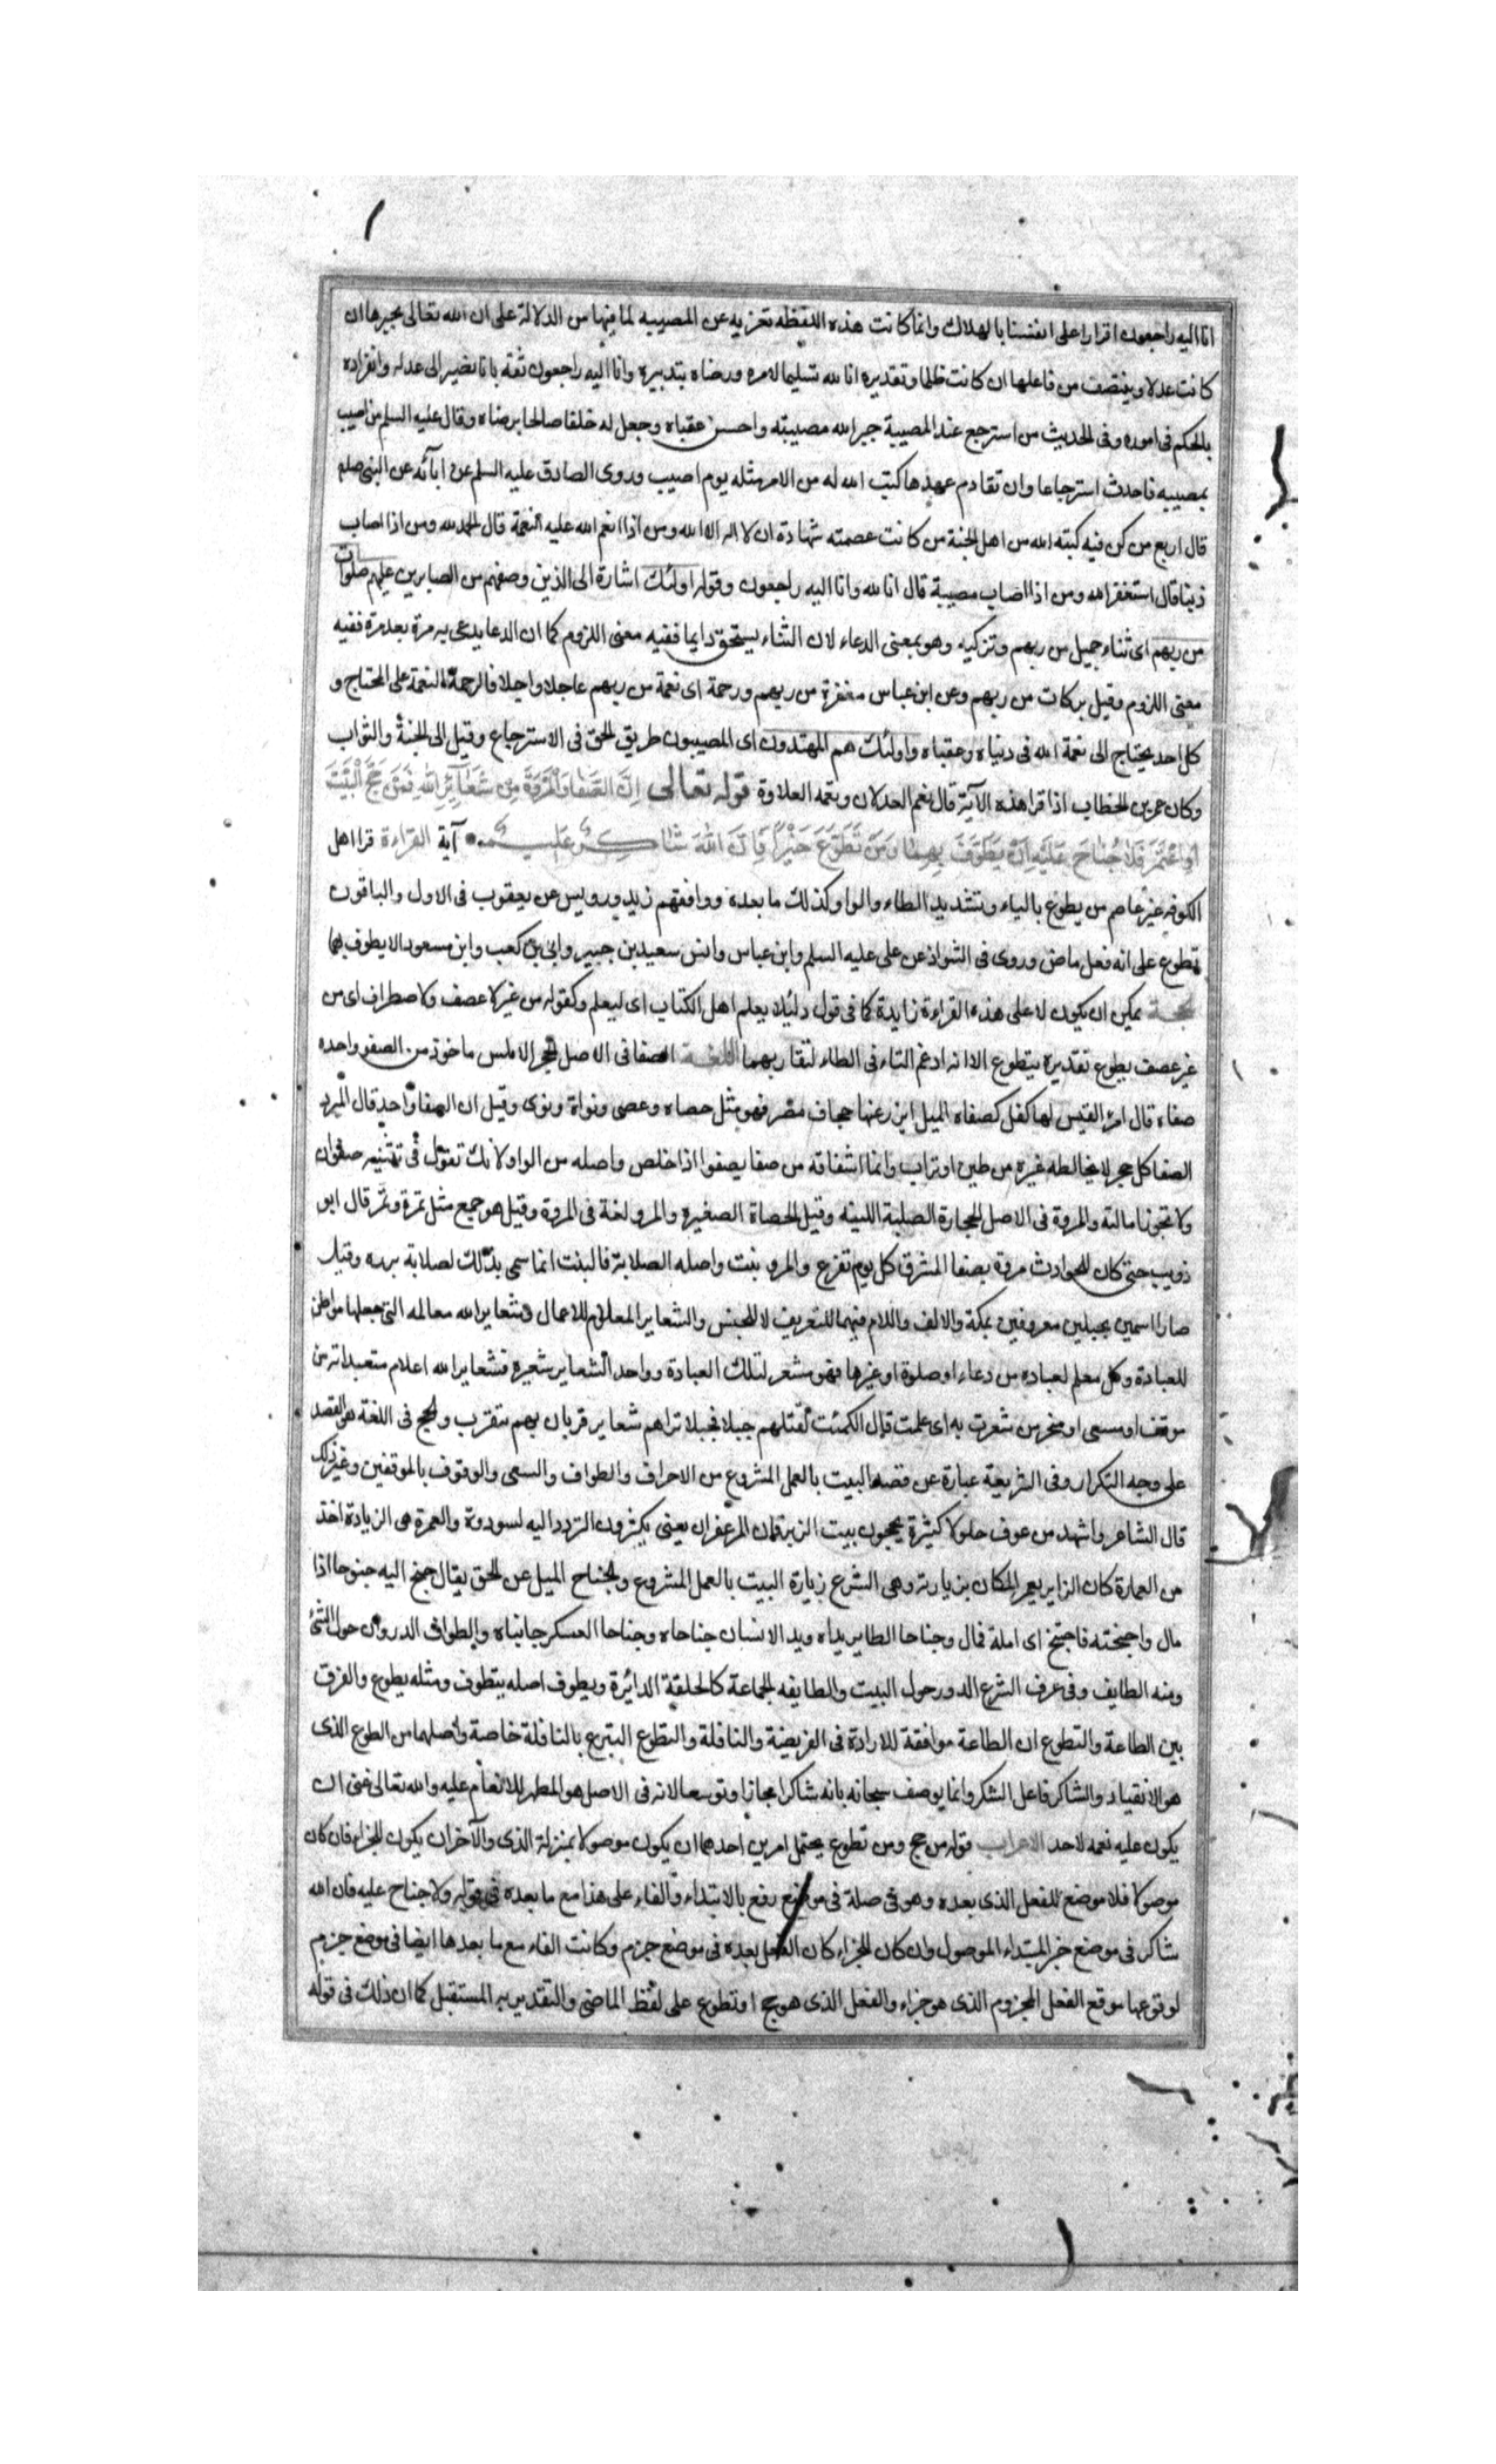 انا اليه راجعون اقرارا على انفسنا بالهلاك وانما كانت هذه اللفظه تعزيه عن المصيبه لما فيها من الدلالة على ان الله تعالى يجبرها ان
كانت عدلا وينتصف من فاعلها ان كانت ظلما وتقديره انا لله تسليما لامره ورضاه بتدبيره وانا اليه راجعون ثقة بانا نصير الى عدله وانفراده
بالحكم فى اموره وفى الحديث من استرجع عند المصيبة جبر الله مصيبته واحسن عقباه وجعل له خلفا صالحا يرضاه وقال عليه السلم من اصيب
بمصيبه فاحدث استرجاعا وان تقادم عهدها كتب الله له من الامر مثله يوم اصيب وروى الصادق عليه السلم عن ابآئه عن النبى صلم
قال اربع من كن فيه كتبه الله من اهل الجنة من كانت عصمته شهادة ان لا اله الا الله ومن اذا انعم الله عليه النعمة قال الحمد لله ومن اذا اصاب
ذنبا قال استغفر الله ومن اذا اصاب مصيبة قال انا لله وانا اليه راجعون وقوله اولئك اشارة الى الذين وصفهم من الصابرين عليهم صلوات
من ربهم اى ثناء جميل من ربهم وتزكيه وهو بمعنى الدعاء لان الثناء يستحق دايما ففيه معنى اللزوم كما ان الدعا يدعى به مرة بعد مرة ففيه
معنى اللزوم وقيل بركات من ربهم وعن ابن عباس مغفرة من ربهم ورحمة اى نعمة من ربهم عاجلا واجلا فالرحمة النعمة على المحتاج و
كل احد يحتاج الى نعمة الله فى دنياه وعقباه واولئك هم المهتدون اى المصيبون طريق الحق فى الاسترجاع وقيل الى الجنة والثواب
وكان عمر بن الخطاب اذا قرا هذه الآية قال نعم العدلان ونعمه العلاوة قوله تعالى اِنَّ الصَّفَا وَالْمَرْوَةَ مِن شَعَآئِرِ اللّٰهِ فَمَنْ حَجَّ الْبَيْتَ
اَوِ اعْتَمَرَ فَلَا جُنَاحَ عَلَيْهِ اَنْ يَطَّوَّفَ بِهِمَا وَمَنْ تَطَوَّعَ خَيْراً فَاِنَّ اللّٰهَ شَاكِرٌ عَلِيمٌ آية القراءة قرا اهل
الكوفه غير عاصم من يطوع بالياء وتشديد الطاء والواو وكذلك ما بعده ووافقهم زيد ورويس عن يعقوب فى الاول والباقون
تطوع على انه فعل ماض وروى فى الشواذ عن على عليه السلم وابن عباس وانس سعيد بن جبير وابى بن كعب وابن مسعود الا يطوف بهما
الحجة يمكن ان يكون لا على هذه القراءة زايدة كما فى قول ه لئلا يعلم اهل الكتاب اى ليعلم وكقوله من غير لا عصف ولا اصطراف اى من
غير عصف يطوع تقديره يتطوع الا انه ادغم التاء فى الطاء لتقاربهما اللغة الصفا فى الاصل الحجر الاملس ماخوذ من الصفو واحده
صفاه قال امرؤ القيس لها كفل كصفاه المسيل ابرز عنها جحاف مضر فهو مثل حصاه وحصى ونواة ونوى وقيل ان الصفا واحد قال المبرد
الصفا كل حجر لا يخالطه غيره من طين او تراب وانما اشتقاقه من صفا يصفوا اذا خلص واصله من الواو لانك تقول فى تثنيه صفوان
ولا يجوز امالته والمروة فى الاصل الحجارة الصلبة اللينه وقيل الحصاة الصغيره والمرو لغة فى المروة وقيل هو جمع مثل تمرة وتمر قال ابو
ذويب حتى كان للحوادث مروة بصفا المشرق كل يوم تقرع والمرو نبت واصله الصلابة فالنبت انما سمى بذلك لصلابة برده وقيل
صارا اسمين لجبلين معروفين بمكة والالف واللام فيهما للتعريف لا للجنس والشعاير المعالم للاعمال وشعاير الله معالمه التى جعلها مواطن
للعبادة وكل معلم لعباده من دعاء او صلوة او غيرها فهو مشعر لتلك العبادة وواحد الشعاير شعيره فشعاير الله اعلام متعبداته من
موقف او مسعى او منحر من شعرت به اى علمت قال الكميت نقتلهم جيلا فجيلا تراهم شعاير قربان بهم يتقرب والحج فى اللغة هو القصد
على وجه التكرار وفى الشريعة عبارة عن قصد البيت بالعمل المشروع من الاحرام والطواف والسعى والوقوف بالموقفين وغير ذلك
قال الشاعر واشهد من عوف حلولا كثيرة يحجون بيت الزبرقان المزعفرا يعنى يكثرون التردد اليه لسودده والعمرة هى الزيادة اخذ
من العمارة كان الزاير يعمر المكان بزيارته وهى الشرع زيارة البيت بالعمل المشروع والجناح الميل عن الحق يقال جنح اليه جنوحا اذا
مال واجنحته فاجتنح اى املة فمال وجناحا الطاير يداه ويد الانسان جناحاه وجناحا العسكر جانباه والطواف الدوران حول الشئ
ومنه الطايف وفى عرف الشرع الدور حول البيت والطايفه الجماعة كالحلقة الدائرة ويطوف اصله يتطوف ومثله يطوع والفرق
بين الطاعة والتطوع ان الطاعة موافقة للارادة فى الفريضة والنافلة والتطوع التبرع بالنافلة خاصة واصلهما من الطوع الذى
هو الانقياد والشاكر فاعل الشكر وانما يوصف سبحانه بانه شاكر مجازا وتوسعا لانه فى الاصل هو المظهر للانعام عليه والله تعالى غنى ان
يكون عليه نعمه لاحد الاعراب قوله من حج ومن تطوع يحتمل امرين احدهما ان يكون موصولا بمنزلة الذى والآخر ان يكون للجزاء فان كان
موصولا فلا موضع للفعل الذى بعده وهو فى صلة فى موضع رفع بالابتداء والفاء على هذا مع ما بعده فى قوله ولا جناح عليه فان الله
شاكر فى موضع خبر المبتداء الموصول وان كان للجزاء كان الفعل بعده فى موضع جزم وكانت الفاء مع ما بعدها ايضا فى موضع جزم
لوقوعها موقع الفعل المجزوم الذى هو جزاء والفعل الذى هو حج او تطوع على لفظ الماضى والتقدير به المستقبل كما ان ذلك فى قوله